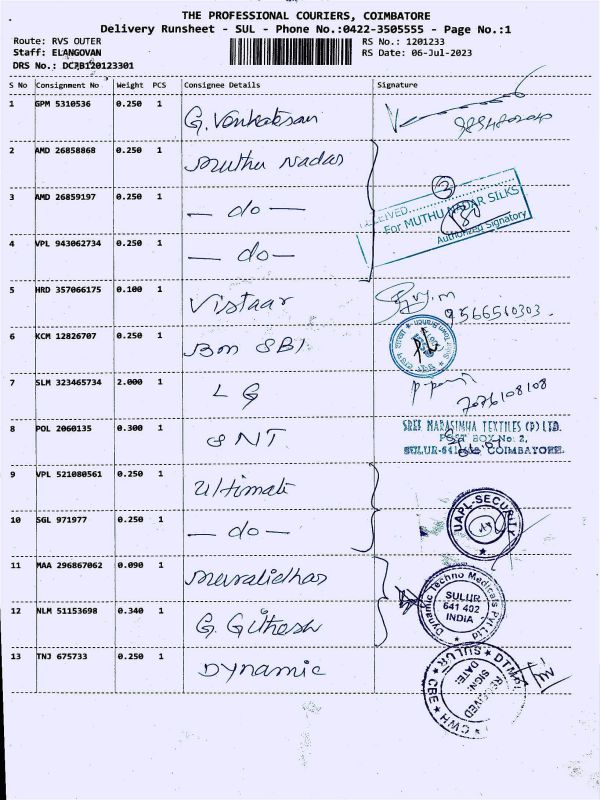 THE PROFESSIONAL COURIERS, COIMBATORE
Delivery Runsheet - SUL - Phone No.:0422-3505555 - Page No.:1
Route: RVS OUTER RS No.: 1201233
Staff: ELANGOVAN RS Date: 06-Jul-2023
DRS No.:
S No Consignment No Weight PCS Consignee Details Signature
1 GPM 5310536 0.250 1 G. Venkatesan
2 AMD 26858868 0.250 1 Muthu Nadar
3 AMD 26859197 0.250 1 — do —
RECEIVED
For MUTHU NADAR SILKS
Authorized Signatory
4 VPL 943062734 0.250 1 — do —
5 HRD 357066175 0.100 1 Vistaar
9566510303.
6 KCM 12826707 0.250 1 Bm SBI
7 SLM 323465734 2.000 1 L G
7086108108
8 POL 2060135 0.300 1 SNT.
SREE NARASIMHA TEXTILES (P) LTD.
POST BOX No: 2,
SULUR-641 COIMBATORE.
9 VPL 521080561 0.250 1 Ultimate
10 SGL 971977 0.250 1 — do —
UAPL-SECURITY
11 MAA 296867062 0.090 1 Muralidhar
Dynamic Techno Medicals Pvt Ltd
SULUR
641 402
INDIA
12 NLM 51153698 0.340 1 G. Githesh
13 TNJ 675733 0.250 1 Dynamic
DTMPL SULUR CWH CBE
RECEIVED
SIGN:
DATE: